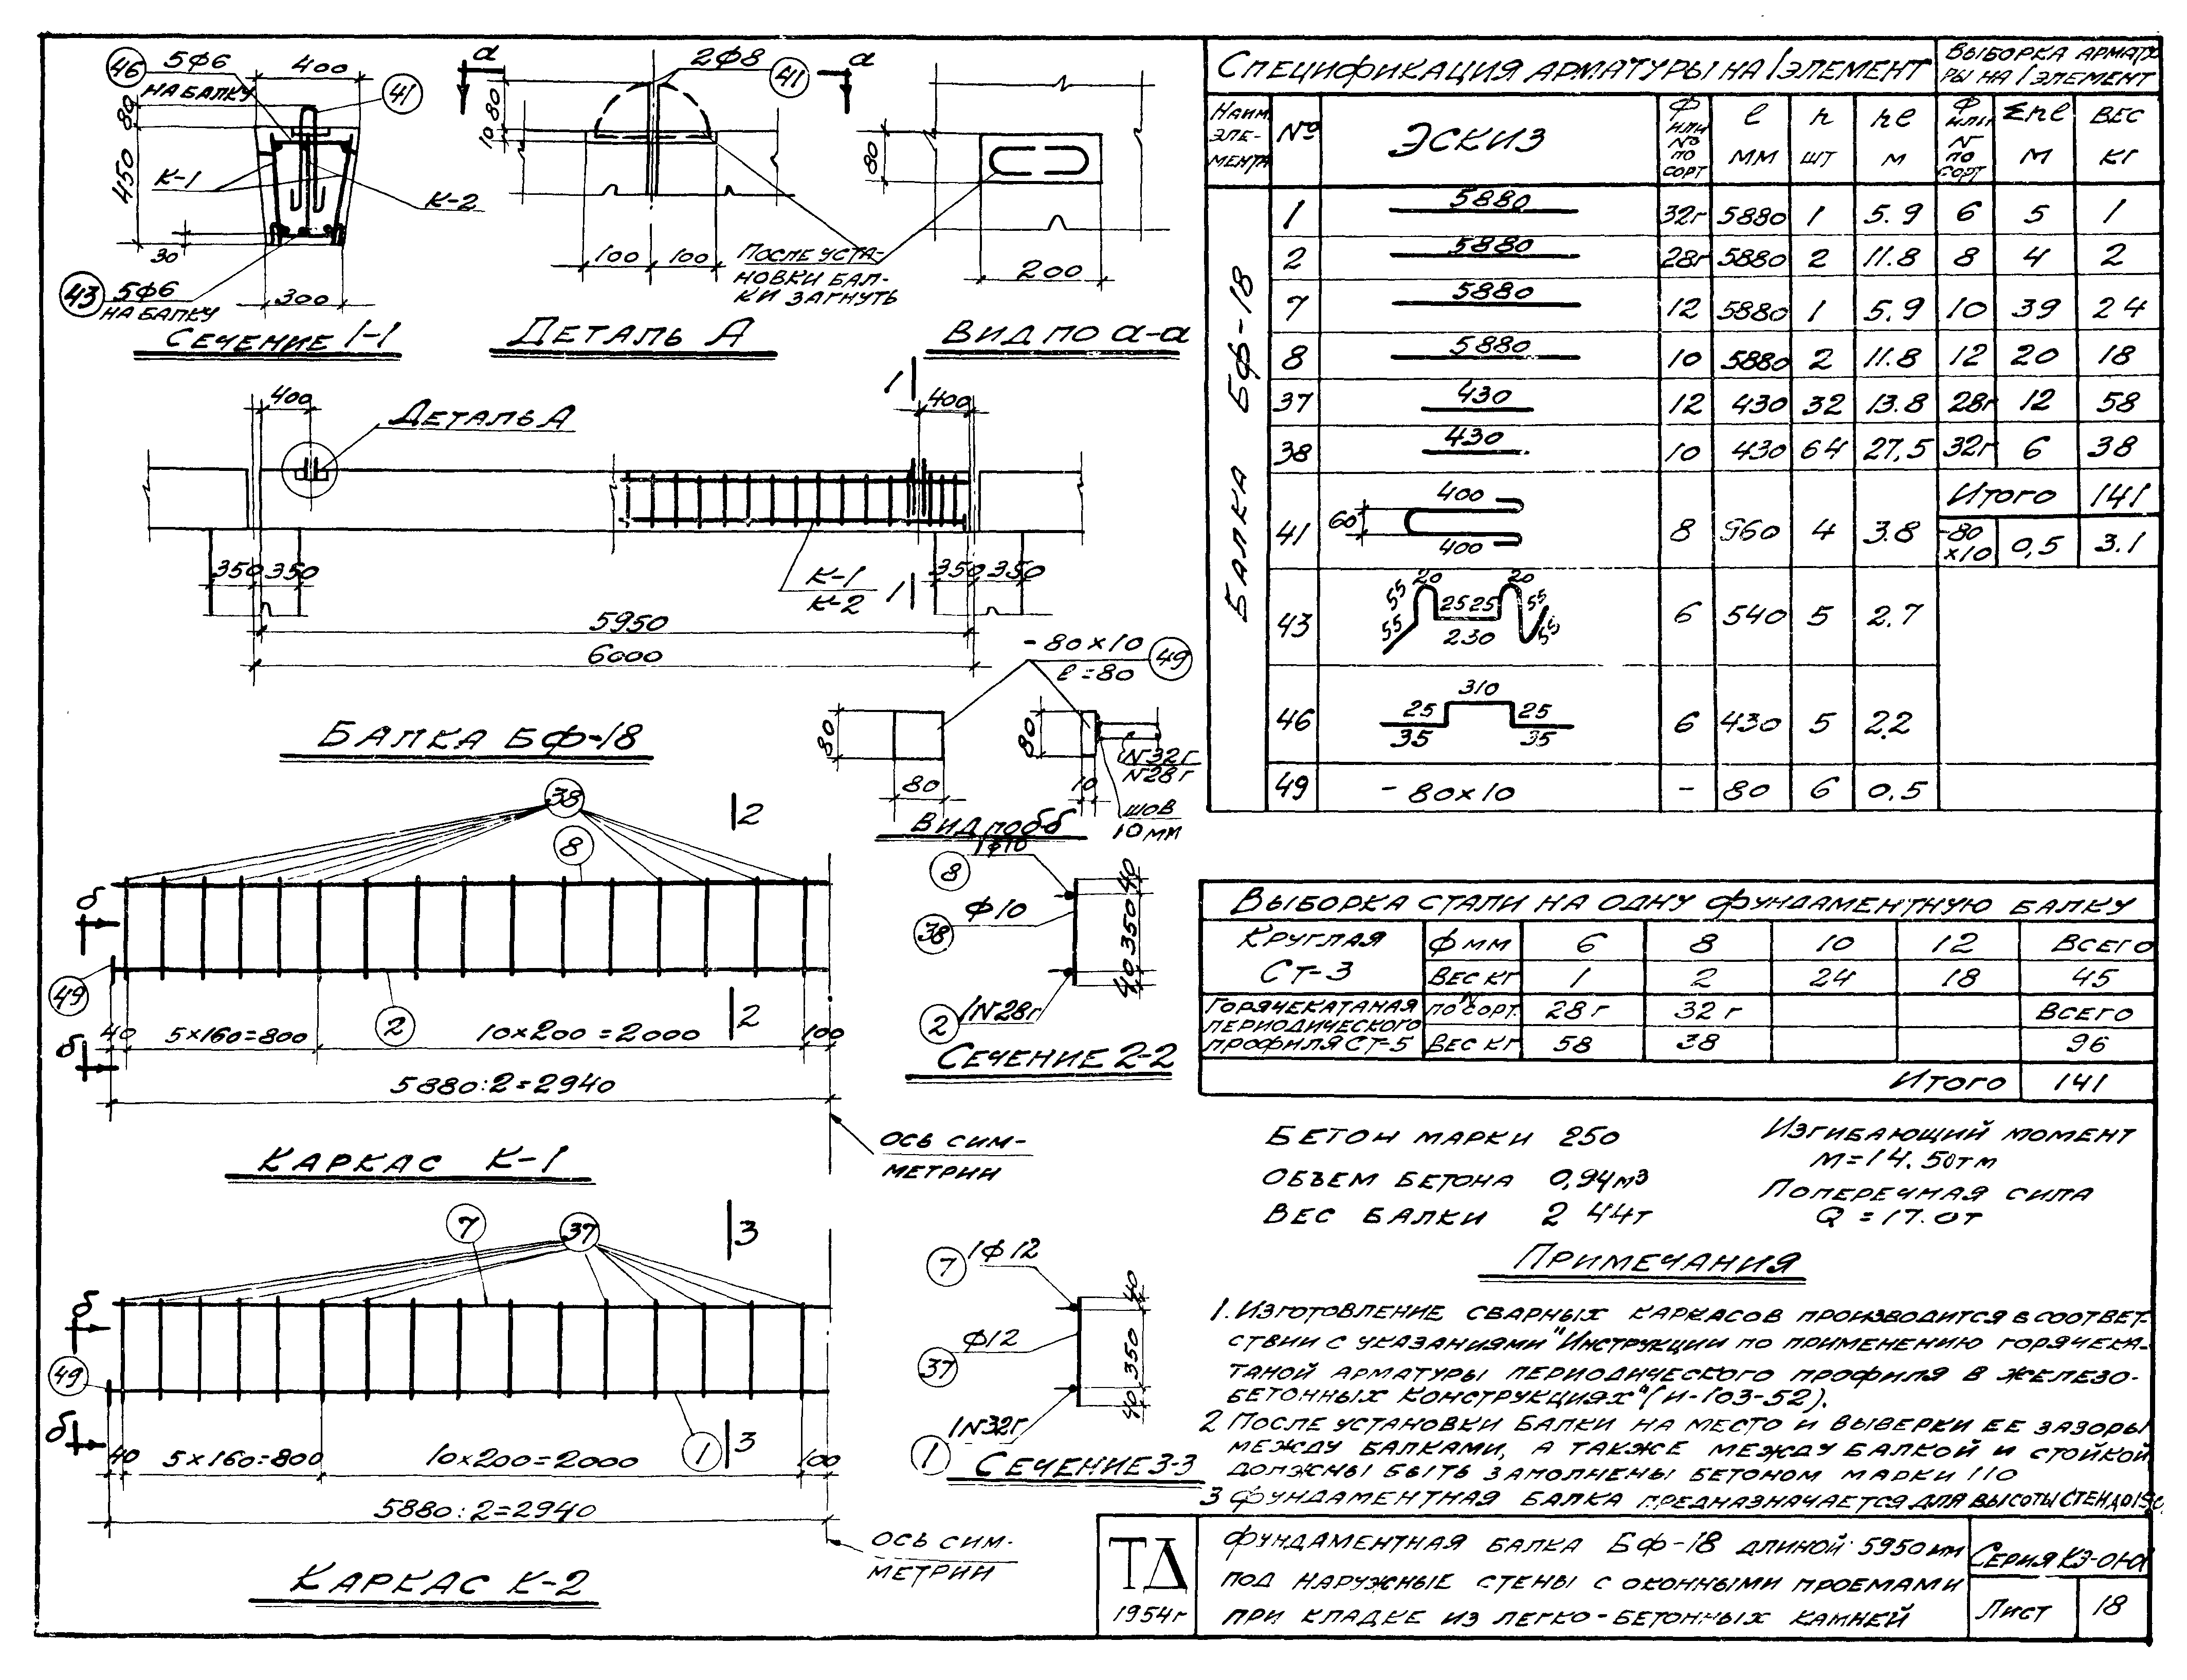 46 5ф6
НА БАЛКУ
400
41
80
450
К-1
К-2
30
43 5ф6
НА БАЛКУ
300
СЕЧЕНИЕ 1-1
а
2ф8 41
а
80
10
100 100
ПОСЛЕ УСТА-
НОВКИ БАЛ-
КИ ЗАГНУТЬ
ДЕТАЛЬ А
80
200
ВИД ПО а-а
400
ДЕТАЛЬ А
1
400
350 350
К-1
К-2
1
350 350
5950
6000
БАЛКА БФ-18
-80×10 49
ℓ=80
80
80
80
10
N32Г
N28Г
ШОВ
10ММ
ВИД ПО б-б
38
8
2
б
49
б
40 5×160=800
2
10×200=2000
2
100
5880:2=2940
ОСЬ СИМ-
МЕТРИИ
КАРКАС К-1
8 1ф10
38 ф10
2 1N28Г
40
350
40
СЕЧЕНИЕ 2-2
7
37
3
б
49
б
40 5×160=800
10×200=2000
1
3
100
5880:2=2940
ОСЬ СИМ-
МЕТРИИ
КАРКАС К-2
7 1ф12
37 ф12
1 1N32Г
40
350
40
СЕЧЕНИЕ 3-3
СПЕЦИФИКАЦИЯ АРМАТУРЫ НА 1 ЭЛЕМЕНТ
ВЫБОРКА АРМАТУ
РЫ НА 1 ЭЛЕМЕНТ
НАИМ. ЭЛЕ- МЕНТА № ЭСКИЗ Ф ИЛИ № ПО СОРТ ℓ ММ n ШТ nℓ М Ф ИЛИ N ПО СОРТ Σnℓ М ВЕС КГ
БАЛКА БФ-18
1 5880 32Г 5880 1 5.9 6 5 1
2 5880 28Г 5880 2 11.8 8 4 2
7 5880 12 5880 1 5.9 10 39 24
8 5880 10 5880 2 11.8 12 20 18
37 430 12 430 32 13.8 28Г 12 58
38 430 10 430 64 27.5 32Г 6 38
ИТОГО 141
41 60 400 400 8 960 4 3.8 -80 ×10 0,5 3.1
43 55 55 20 25 25 230 20 55 55 6 540 5 2.7
46 35 25 310 25 35 6 430 5 2.2
49 -80×10 - 80 6 0.5
ВЫБОРКА СТАЛИ НА ОДНУ ФУНДАМЕНТНУЮ БАЛКУ
КРУГЛАЯ СТ-3 ф ММ 6 8 10 12 ВСЕГО
ВЕС КГ 1 2 24 18 45
ГОРЯЧЕКАТАНАЯ ПЕРИОДИЧЕСКОГО ПРОФИЛЯ СТ-5 N ПО СОРТ. 28Г 32Г ВСЕГО
ВЕС КГ 58 38 96
ИТОГО 141
БЕТОН МАРКИ 250
ОБЪЕМ БЕТОНА 0,94М3
ВЕС БАЛКИ 2 44Т
ИЗГИБАЮЩИЙ МОМЕНТ
М=14.50ТМ
ПОПЕРЕЧНАЯ СИЛА
Q=17.0Т
ПРИМЕЧАНИЯ
1. ИЗГОТОВЛЕНИЕ СВАРНЫХ КАРКАСОВ ПРОИЗВОДИТСЯ В СООТВЕТ-
СТВИИ С УКАЗАНИЯМИ "ИНСТРУКЦИИ ПО ПРИМЕНЕНИЮ ГОРЯЧЕКА-
ТАНОЙ АРМАТУРЫ ПЕРИОДИЧЕСКОГО ПРОФИЛЯ В ЖЕЛЕЗО-
БЕТОННЫХ КОНСТРУКЦИЯХ" (И-103-52).
2 ПОСЛЕ УСТАНОВКИ БАЛКИ НА МЕСТО И ВЫВЕРКИ ЕЕ ЗАЗОРЫ
МЕЖДУ БАЛКАМИ, А ТАКЖЕ МЕЖДУ БАЛКОЙ И СТОЙКОЙ
ДОЛЖНЫ БЫТЬ ЗАПОЛНЕНЫ БЕТОНОМ МАРКИ 110
3 ФУНДАМЕНТНАЯ БАЛКА ПРЕДНАЗНАЧАЕТСЯ ДЛЯ ВЫСОТЫ СТЕН ДО
ТД
1954Г
ФУНДАМЕНТНАЯ БАЛКА БФ-18 ДЛИНОЙ 5950ММ
ПОД НАРУЖНЫЕ СТЕНЫ С ОКОННЫМИ ПРОЕМАМИ
ПРИ КЛАДКЕ ИЗ ЛЕГКО-БЕТОННЫХ КАМНЕЙ
СЕРИЯ КЭ-01-01
ЛИСТ 18